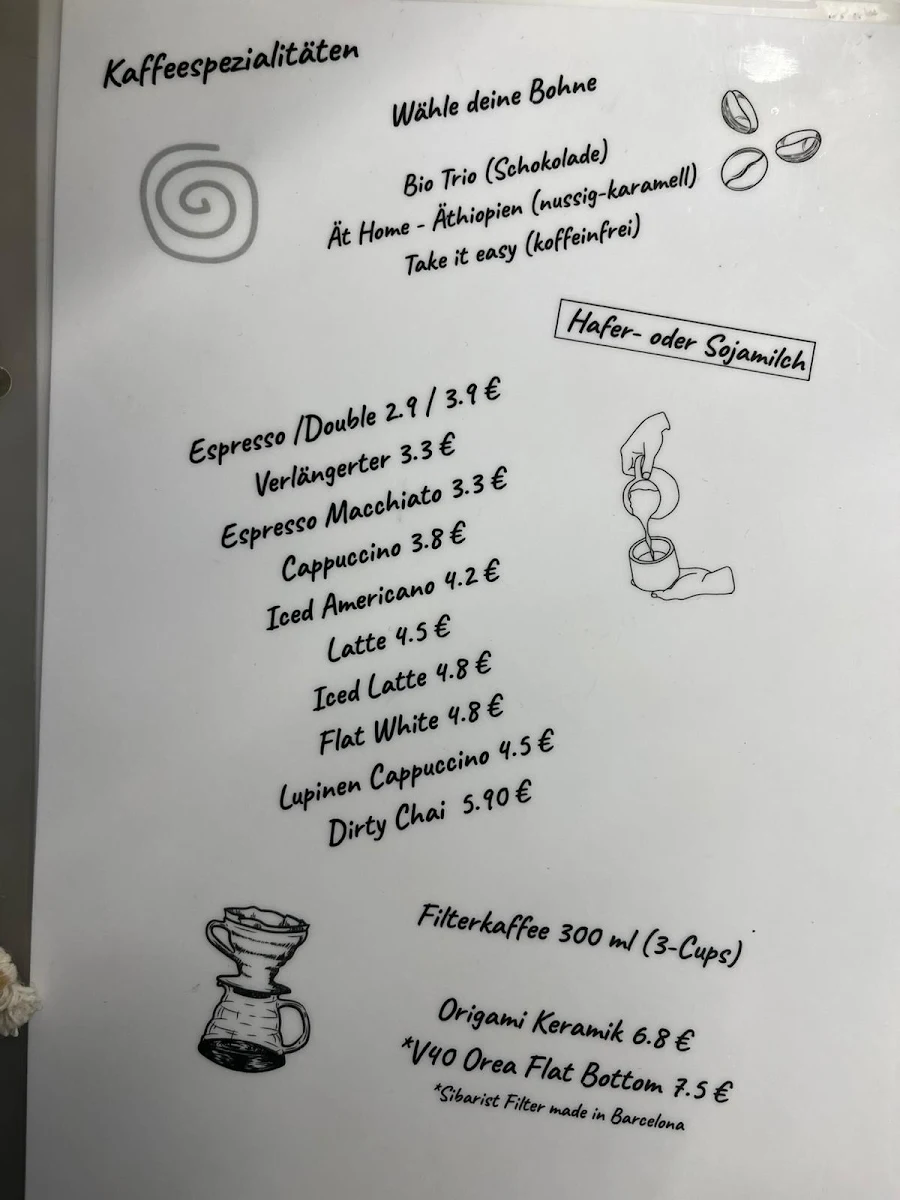 Kaffeespezialitäten
Wähle deine Bohne
Bio Trio (Schokolade)
Ät Home - Äthiopien (nussig-karamell)
Take it easy (koffeinfrei)
Hafer- oder Sojamilch
Espresso /Double 2.9 / 3.9 €
Verlängerter 3.3 €
Espresso Macchiato 3.3 €
Cappuccino 3.8 €
Iced Americano 4.2 €
Latte 4.5 €
Iced Latte 4.8 €
Flat White 4.8 €
Lupinen Cappuccino 4.5 €
Dirty Chai 5.90 €
Filterkaffee 300 ml (3-Cups)
Origami Keramik 6.8 €
*V40 Orea Flat Bottom 7.5 €
*Sibarist Filter made in Barcelona